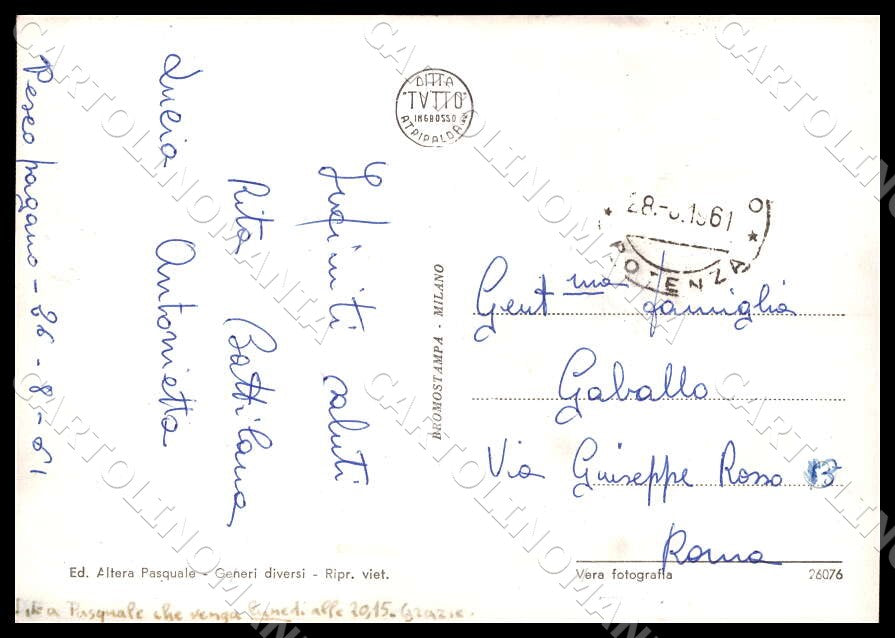 Pescopagano - 26 - 8 - 61
Infiniti saluti
Rita Battilana
Lucia Antonietta
DITTA
"TVTTO"
INGROSSO
ATRIPALDA
28.-8.1961
POTENZA
BROMOSTAMPA - MILANO
Gent ma famiglia
Gaballo
Via Giuseppe Rosso 13
Roma
Ed. Altera Pasquale - Generi diversi - Ripr. viet.
Vera fotografia 26076
a Pasquale che venga lunedì alle 20,15. Grazie.
CARTOLINOMANIA